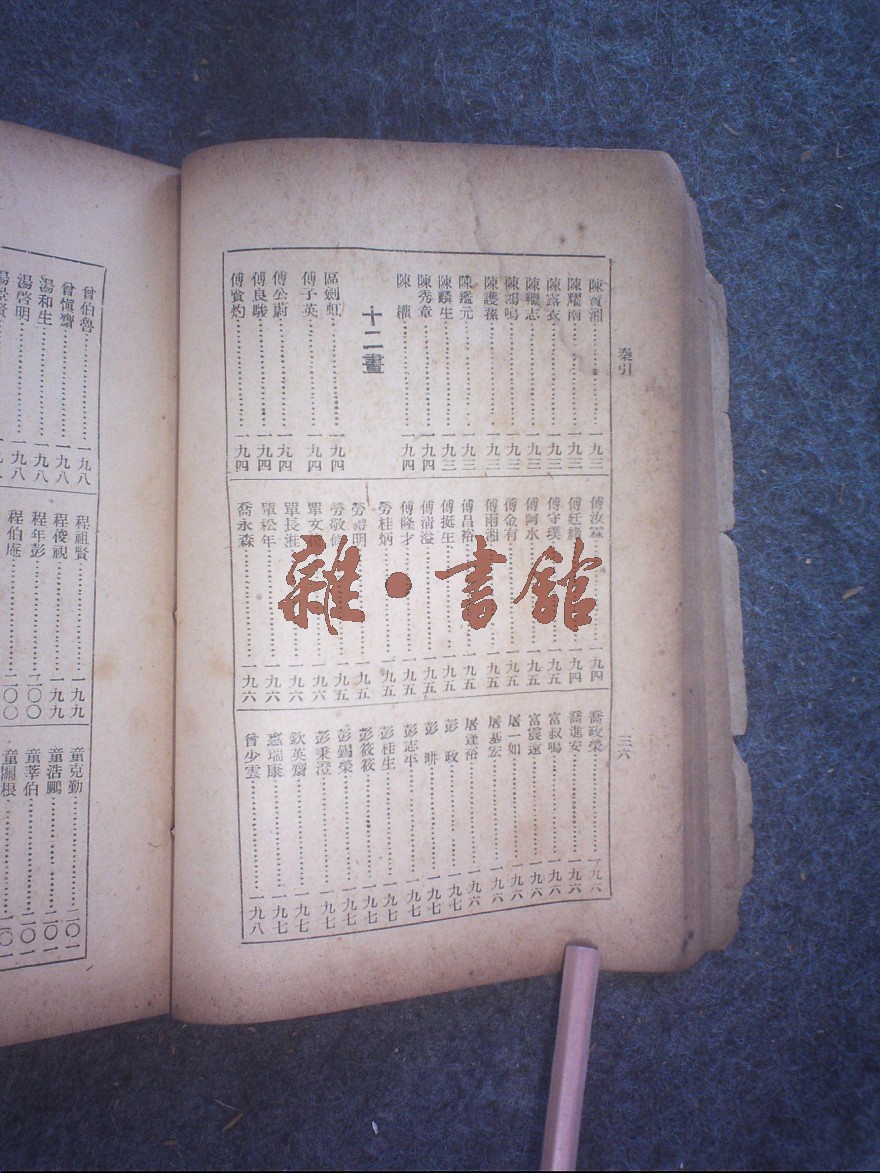 索引
三六
陳耀南……一九三
陳露衣……一九三
陳繼志……一九三
陳鴻鳴……一九三
陳護蓀……一九三
陳鑑元……一九三
陳麟生……一九三
陳秀章……一九四
陳 權……一九四
十二畫
區劍虹……一九四
傅子英……一九四
傅公蔚……一九四
傅良駿……一九四
傅賓灼……一九四
傅汝霖……一九四
傅守璞……一九五
傅阿水……一九五
傅金有……一九五
傅雨湘……一九五
傅昌裕……一九五
傅挺生……一九五
傅清溢……一九五
傅隆才……一九五
勞桂炳……一九五
單長溎……一九六
單松年……一九六
喬永森……一九六
喬政榮……一九六
喬進安……一九六
富叔鳴……一九六
富震遠……一九六
屠一如……一九六
屠基宏……一九六
屠達裕……一九六
彭 政……一九七
彭志平……一九七
彭桂生……一九七
彭筱筱……一九七
彭錫榮……一九七
彭秉澄……一九七
欽英齋……一九七
惠瑞康……一九七
曾少雲……一九八
雜·書館
曾伯魯……一九八
曾慎齋……一九八
湯和生……一九八
湯啓明……一九八
程祖賢……一九九
程俊視……一九九
程年彭……二〇〇
程伯庵……二〇〇
童克勤……二〇一
童浩鵬……二〇一
童莘伯……二〇一